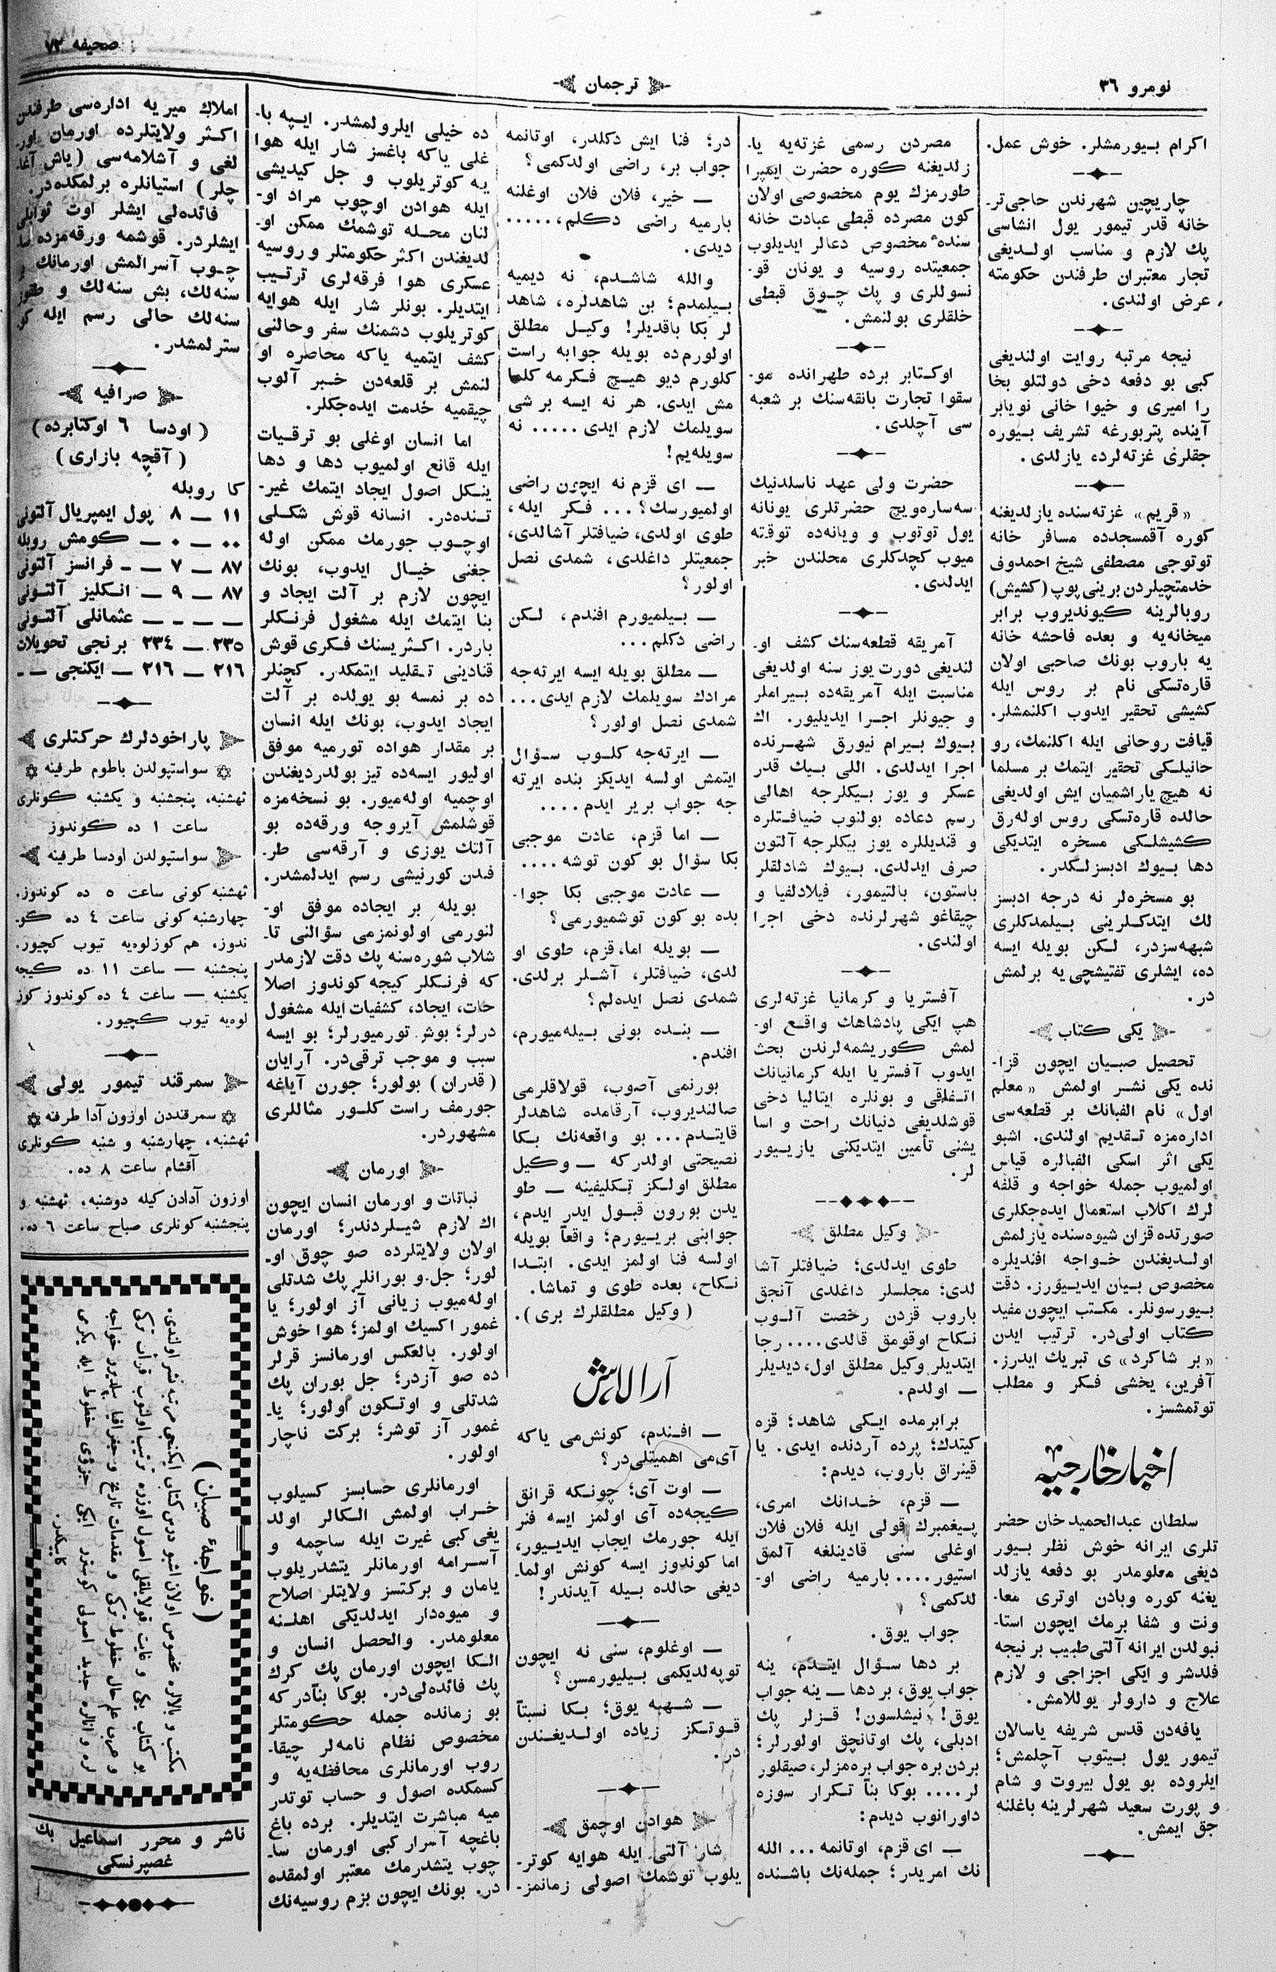 نومرو ٣٦
ترجمان
صحیفه ٧٣
اكرام بیورمشلر. خوش عمل.
چاریچین شهرندن حاجی‌تر-
خانه قدر تیمور یول انشاسی
پك لازم و مناسب اولدیغی
تجار معتبران طرفندن حكومته
عرض اولندی.
نیجه مرتبه روایت اولندیغی
كبی بو دفعه دخی دولتلو بخا
را امیری و خیوا خانی نویابر
آینده پتربورغه تشریف بیوره
جقلری غزته‌لرده یازلدی.
«قریم» غزته‌سنده یازلدیغنه
كوره آقمسجدده مسافر خانه
توتوجی مصطفی شیخ احمدوف
خدمتچیلردن برینی پوپ (كشیش)
روبالرینه كیوندیروب برابر
میخانه‌یه و بعده فاحشه خانه
یه باروب بونك صاحبی اولان
قاره‌تسكی نام بر روس ایله
كشیشی تحقیر ایدوب اكلنمشلر.
قیافت روحانی ایله اكلنمك، رو
حانیلكی تحقیر ایتمك بر مسلما
نه هیچ یاراشمیان ایش اولدیغی
حالده قاره‌تسكی روس اوله‌رق
كشیشلكی مسخره ایتدیكی
دها بیوك ادبسزلكدر.
بو مسخره‌لر نه درجه ادبسز
لك ایتدكلرینی بیلمدكلری
شبهه‌سزدر، لكن بویله ایسه
ده، ایشلری تفتیشچی‌یه برلمش
در.
یكی كتاب
تحصیل صبیان ایچون قزا-
نده یكی نشر اولمش «معلم
اول» نام الفبانك بر قطعه‌سی
اداره‌مزه تقدیم اولندی. اشبو
یكی اثر اسكی الفبالره قیاس
اولمیوب جمله خواجه و قلفه
لرك اكلاب استعمال ایده‌جكلری
صورتده قزان شیوه‌سنده یازلمش
اولدیغندن خواجه افندیلره
مخصوص بیان ایدییورز. دقت
بیورسونلر. مكتب ایچون مفید
كتاب اولی‌در. ترتیب ایدن
«بر شاكرد» ی تبریك ایدرز.
آفرین، یخشی فكر و مطلب
توتمشسز.
اخبار خارجیه
سلطان عبدالحمید خان حضر
تلری ایرانه خوش نظر بیور
دیغی معلومدر بو دفعه یازلد
یغنه كوره وبادن اوتری معا-
ونت و شفا برمك ایچون استا-
نبولدن ایرانه آلتی طبیب بر نیجه
فلدشر و ایكی اجزاجی و لازم
علاج و دارولر یوللامش.
یافه‌دن قدس شریفه یاسالان
تیمور یول بیتوب آچلمش؛
ایلروده بو یول بیروت و شام
و پورت سعید شهرلرینه باغلنه
جق ایمش.
مصردن رسمی غزته‌یه یا-
زلدیغنه كوره حضرت ایمپرا
طورمزك یوم مخصوصی اولان
كون مصرده قبطی عبادت خانه
سنده مخصوص دعالر ایدیلوب
جمعیتده روسیه و یونان قو-
نسوللری و پك چوق قبطی
خلقلری بولنمش.
اوكتابر برده طهرانده مو-
سقوا تجارت بانقه‌سنك بر شعبه
سی آچلدی.
حضرت ولی عهد ناسلدنیك
سه‌ساره‌ویچ حضرتلری یونانه
یول توتوب و ویانه‌ده توقته
میوب كچدكلری محلندن خبر
ایدلدی.
آمریقه قطعه‌سنك كشف او-
لندیغی دورت یوز سنه اولدیغی
مناسبت ایله آمریقه‌ده بیراملر
و جیونلر اجرا ایدیلیور. اك
بیوك بیرام نیورق شهرنده
اجرا ایدلدی. اللی بیك قدر
عسكر و یوز بیكلرجه اهالی
رسم دعاده بولنوب ضیافتلره
و قندیللره یوز بیكلرجه آلتون
صرف ایدلدی. بیوك شادلقلر
باستون، بالتیمور، فیلادلفیا و
چیقاغو شهرلرنده دخی اجرا
اولندی.
آفستریا و كرمانیا غزته‌لری
هپ ایكی پادشاهك واقع او-
لمش كوریشمه‌لرندن بحث
ایدوب آفستریا ایله كرمانیانك
اتفاقی و بونلره ایتالیا دخی
قوشلدیغی دنیانك راحت و اسا
یشنی تأمین ایتدیكنی یازییور
لر.
وكیل مطلق
طوی ایدلدی؛ ضیافتلر آشا
لدی؛ مجلسلر داغلدی آنجق
باروب قزدن رخصت آلوب
نكاح اوقومق قالدی.... رجا
ایتدیلر وكیل مطلق اول، دیدیلر
— اولدم.
برابرمده ایكی شاهد؛ قزه
كیتدك؛ پرده آردنده ایدی. یا
قینراق باروب، دیدم:
— قزم، خدانك امری،
پیغمبرك قولی ایله فلان فلان
اوغلی سنی قادینلغه آلمق
استیور.... بارمیه راضی او-
لدكمی؟
جواب یوق.
بر دها سؤال ایتدم، ینه
جواب یوق، بر دها — ینه جواب
یوق! نیشلسون! قزلر پك
ادبلی، پك اوتانچق اولورلر؛
بردن بره جواب بره‌مزلر، صیقلور
لر.... بوكا بناً تكرار سوزه
داورانوب دیدم:
— ای قزم، اوتانمه... الله
نك امریدر؛ جمله‌نك باشنده
در؛ فنا ایش دكلدر، اوتانمه
جواب بر، راضی اولدكمی؟
— خیر، فلان فلان اوغلنه
بارمیه راضی دكلم،.....
دیدی.
والله شاشدم، نه دیمیه
بیلمدم؛ بن شاهدلره، شاهد
لر بكا باقدیلر! وكیل مطلق
اولورم‌ده بویله جوابه راست
كلورم دیو هیچ فكرمه كلما
مش ایدی. هر نه ایسه بر شی
سویلمك لازم ایدی..... نه
سویله‌یم!
— ای قزم نه ایچون راضی
اولمیورسك؟... فكر ایله،
طوی اولدی، ضیافتلر آشالدی،
جمعیتلر داغلدی، شمدی نصل
اولور؟
— بیلمیورم افندم، لكن
راضی دكلم...
— مطلق بویله ایسه ایرته‌جه
مرادك سویلمك لازم ایدی...
شمدی نصل اولور؟
— ایرته‌جه كلوب سؤال
ایتمش اولسه ایدیكز بنده ایرته
جه جواب بریر ایدم....
— اما قزم، عادت موجبی
بكا سؤال بو كون توشه....
— عادت موجبی بكا جوا-
بده بو كون توشمیورمی؟
— بویله اما، قزم، طوی او
لدی، ضیافتلر، آشلر برلدی.
شمدی نصل ایده‌لم؟
— بنده بونی بیله‌میورم،
افندم.
بورنمی آصوب، قولاقلرمی
صالندیروب، آرقامده شاهدلر
قایتدم... بو واقعه‌نك بكا
نصیحتی اولدركه — وكیل
مطلق اولكز تكلیفینه — طو
یدن بورون قبول ایدر ایدم،
جوابنی برییورم؛ واقعاً بویله
اولسه فنا اولمز ایدی. ابتدا
نكاح، بعده طوی و تماشا.
(وكیل مطلقلرك بری).
آرالاش
— افندم، كونش‌می یاكه
آی‌می اهمیتلی‌در؟
— اوت آی؛ چونكه قرانق
كیجه‌ده آی اولمز ایسه فنر
ایله جورمك ایجاب ایدییور،
اما كوندوز ایسه كونش اولما-
دیغی حالده بیله آیدندر!
— اوغلوم، سنی نه ایچون
توپه‌لدیكمی بیلیورمسن؟
— شبهه یوق؛ بكا نسبتاً
قوتكز زیاده اولدیغندن
در.
هوادن اوچمق
شار آلتی ایله هوایه كوتر-
یلوب توشمك اصولی زمانمز-
ده خیلی ایلرولمشدر. ایپه با-
غلی یاكه باغسز شار ایله هوا
یه كوتریلوب و جل كیدیشی
ایله هوادن اوچوب مراد او-
لنان محله توشمك ممكن او-
لدیغندن اكثر حكومتلر و روسیه
عسكری هوا فرقه‌لری ترتیب
ایتدیلر. بونلر شار ایله هوایه
كوتریلوب دشمنك سفر وحالنی
كشف ایتمیه یاكه محاصره او
لنمش بر قلعه‌دن خبر آلوب
چیقمیه خدمت ایده‌جكلر.
اما انسان اوغلی بو ترقیات
ایله قانع اولمیوب دها و دها
ینكل اصول ایجاد ایتمك غیر-
تنده‌در. انسانه قوش شكلی
اوچوب جورمك ممكن اوله
جغنی خیال ایدوب، بونك
ایچون لازم بر آلت ایجاد و
بنا ایتمك ایله مشغول فرنكلر
باردر. اكثریسنك فكری قوش
قنادینی تقلید ایتمكدر. كچنلر
ده بر نمسه بو یولده بر آلت
ایجاد ایدوب، بونك ایله انسان
بر مقدار هواده تورمیه موفق
اولیور ایسه‌ده تیز بولدردیغندن
اوچمیه اوله‌میور. بو نسخه‌مزه
قوشلمش آیروجه ورقه‌ده بو
آلتك یوزی و آرقه‌سی طر-
فندن كورنیشی رسم ایدلمشدر.
بویله بر ایجاده موفق او-
لنورمی اولونمزمی سؤالنی تا-
شلاب شوره‌سنه پك دقت لازمدر
كه فرنكلر كیجه كوندوز اصلا
حات، ایجاد، كشفیات ایله مشغول
درلر؛ بوش تورمیورلر؛ بو ایسه
سبب و موجب ترقی‌در. آرایان
(قدران) بولور؛ جورن آیاغه
جورمف راست كلور مثاللری
مشهوردر.
اورمان
نباتات و اورمان انسان ایچون
اك لازم شیلردندر؛ اورمان
اولان ولایتلرده صو چوق او-
لور؛ جل و بورانلر پك شدتلی
اوله‌میوب زیانی آز اولور؛ یا
غمور اكسیك اولمز؛ هوا خوش
اولور. بالعكس اورمانسز قرلر
ده صو آزدر؛ جل بوران پك
شدتلی و اوتكون اولور؛ یا-
غمور آز توشر؛ بركت ناچار
اولور.
اورمانلری حسابسز كسیلوب
خراب اولمش الكالر اولد
یغی كبی غیرت ایله ساچمه و
آسرامه اورمانلر یتشدریلوب
یامان و بركتسز ولایتلر اصلاح
و میوه‌دار ایدلدیكی اهلنه
معلومدر. والحصل انسان و
الكا ایچون اورمان پك كرك
پك فائده‌لی‌در. بوكا بنأدر كه
بو زمانده جمله حكومتلر
مخصوص نظام نامه‌لر چیقا-
روب اورمانلری محافظه‌یه و
كسمكده اصول و حساب توتدر
میه مباشرت ایتدیلر. برده باغ
باغچه آسرار كبی اورمان سا-
چوب یتشدرمك معتبر اولمقده
در. بونك ایچون بزم روسیه‌نك
املاك میریه اداره‌سی طرفندن
اكثر ولایتلرده اورمان اور-
لغی و آشلامه‌سی (یاش آغا
چلر) استیانلره برلمكده‌در.
فائده‌لی ایشلر اوت ثوابلی
ایشلردر. قوشمه ورقه‌مزده
چوب آسرالمش اورمانك
سنه‌لك، بش سنه‌لك و طقوز
سنه‌لك حالی رسم ایله كو
سترلمشدر.
صرافیه
(اودسا ٦ اوكتابرده)
(آقچه بازاری)
كا روبله
١١ — ٨ پول ایمپریال آلتونی
٠٠ — ٠ — كومش روبله
٨٧ — ٧ — فرانسز آلتونی
٨٧ — ٩ — انكلیز آلتونی
— — — عثمانلی آلتونی
٢٣٥ — ٢٣٤ برنجی تحویلات
٢١٦ — ٢١٦ — ایكنجی —
پاراخودلرك حركتلری
سواستپولدن باطوم طرفینه
ثهشنبه، پنجشنبه و یكشنبه كونلری
ساعت ١ ده كوندوز
سواستپولدن اودسا طرفینه
ثهشنبه كونی ساعت ٥ ده كوندوز.
چهارشنبه كونی ساعت ٤ ده كو-
ندوز، هم كوزلوه‌یه تیوب كچیور.
پنجشنبه — ساعت ١١ ده كیجه
یكشنبه — ساعت ٤ ده كوندوز كوز
لوه‌یه تیوب كچیور.
سمرقند تیمور یولی
سمرقندن اوزون آدا طرفنه
ثهشنبه، چهارشنبه و شنبه كونلری
آقشام ساعت ٨ ده.
اوزون آدادن كیله دوشنبه، ثهشنبه و
پنجشنبه كونلری صباح ساعت ٦ ده.
(خواجهٔ صبیان)
مكتب و بالالره مخصوص اولان اشبو درس كتابی ایكنجی مرتبه نشر اولندی.
بو كتاب یكی و غایت قولایلقلی اصول اوزره ترتیب اولنوب قرأت تركی
و عربی علم حال خطوط تركی و مقدمات تاریخ و جغرافیا بیلدیرر خواجه
لره و آنالره جدید اصولی كوسترر ایكی جزؤی خطوط ایله یكرمی
كاپیكدر.
ناشر و محرر اسماعیل بك
غصپرنسكی